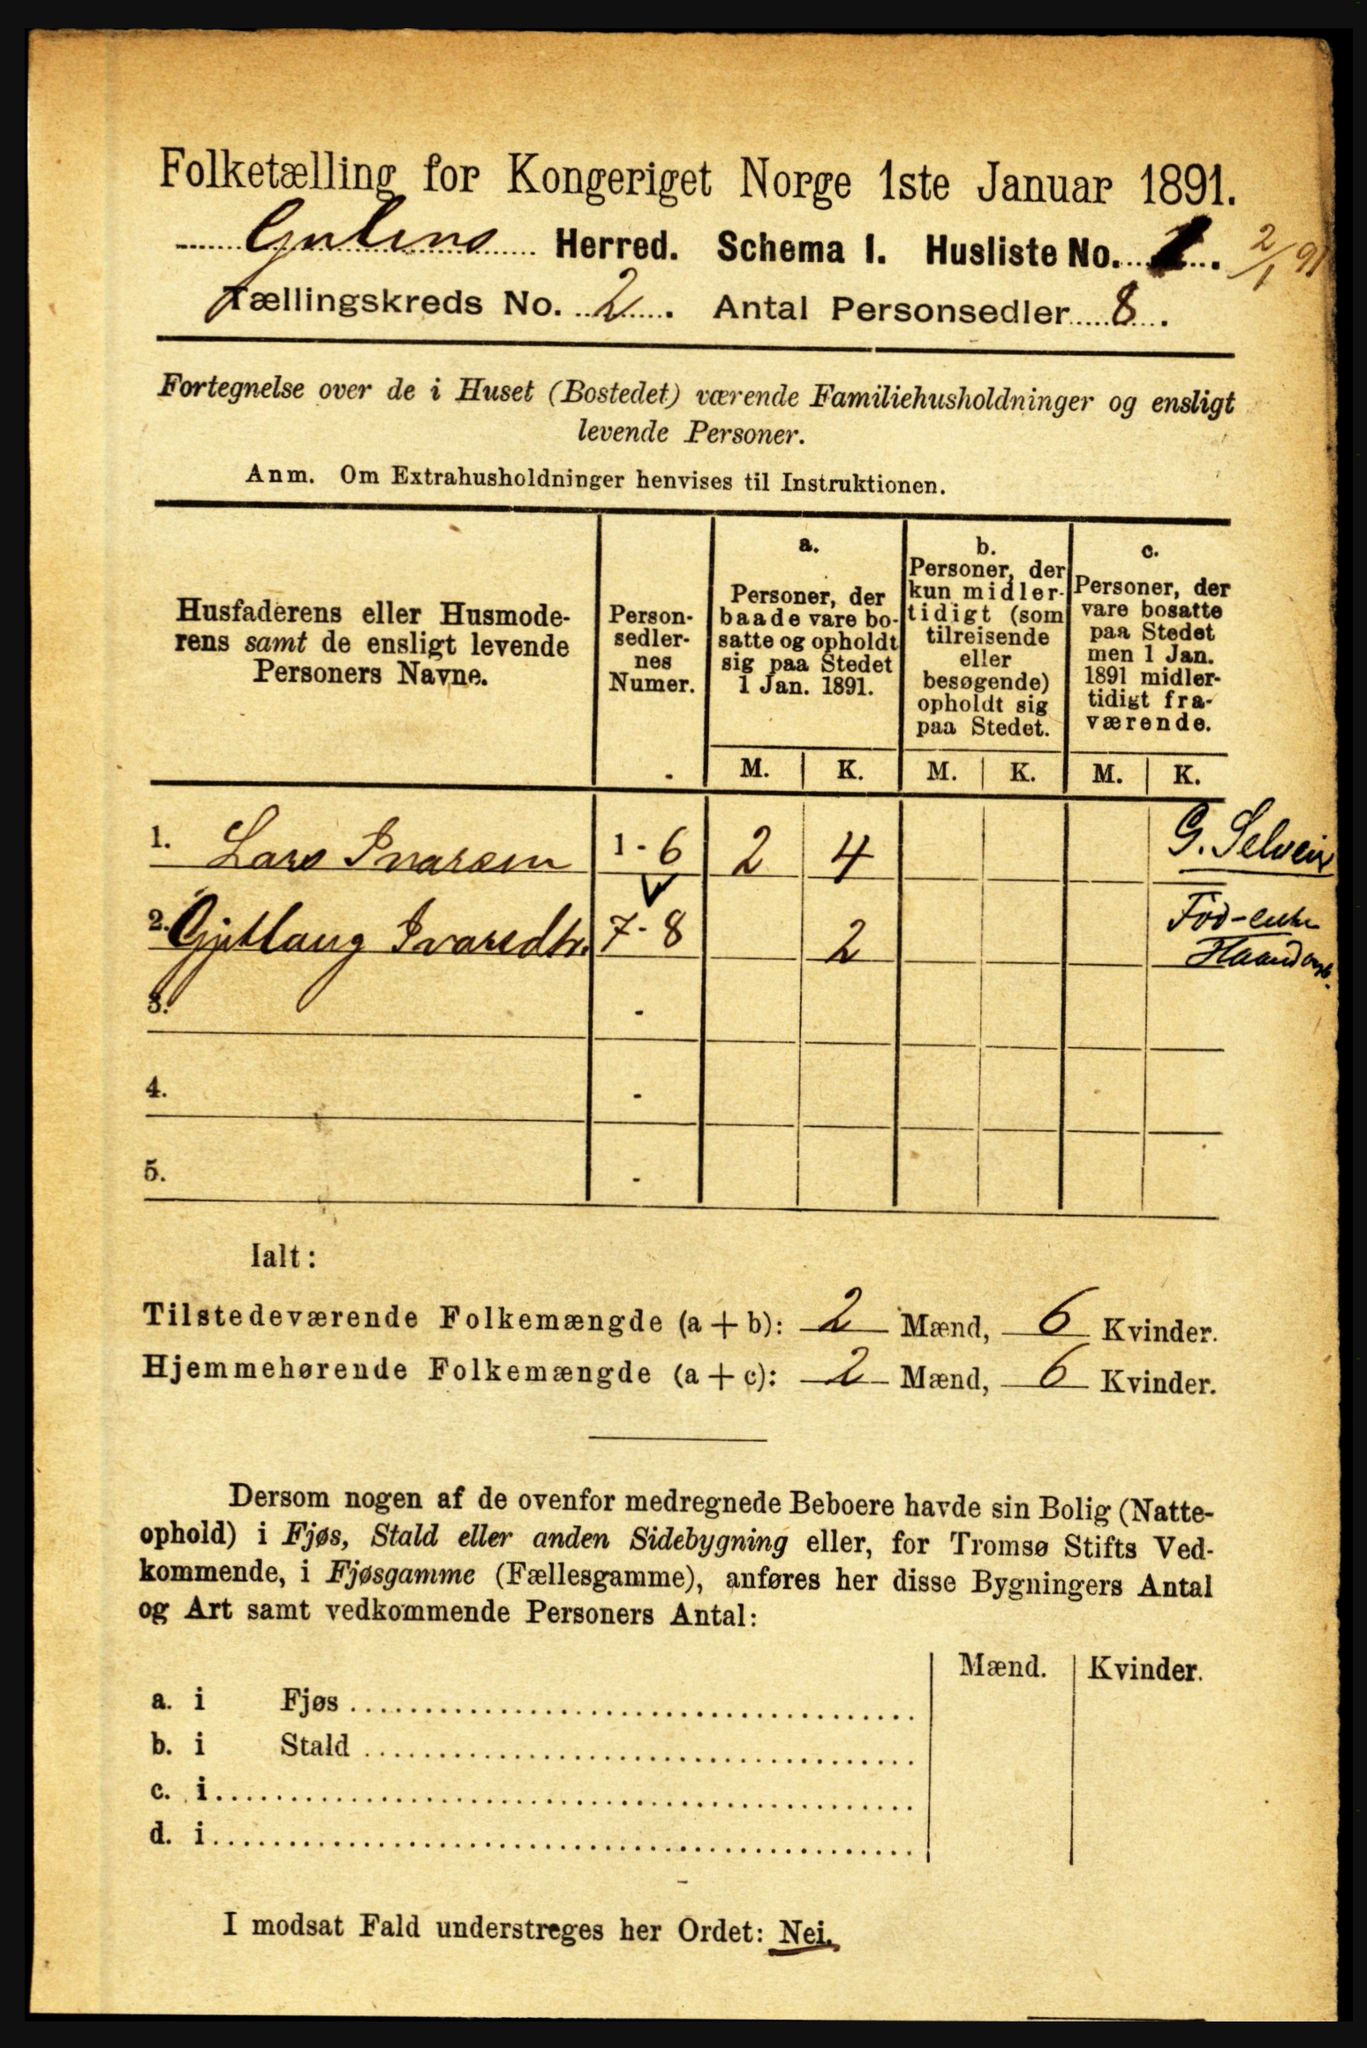 Folketælling for Kongeriget Norge 1ste Januar 1891.
Gulens Herred. Schema I. Husliste No. 1. 2/1 91
Tællingskreds No. 2. Antal Personsedler 8.
Fortegnelse over de i Huset (Bostedet) værende Familiehusholdninger og ensligt
levende Personer.
Anm. Om Extrahusholdninger henvises til Instruktionen.
Husfaderens eller Husmode-
rens samt de ensligt levende
Personers Navne.
Person-
sedler-
nes
Numer.
a.
Personer, der
baade vare bo-
satte og opholdt
sig paa Stedet
1 Jan. 1891.
b.
Personer, der
kun midler-
tidigt (som
tilreisende
eller
besøgende)
opholdt sig
paa Stedet.
c.
Personer, der
vare bosatte
paa Stedet
men 1 Jan.
1891 midler-
tidigt fra-
værende.
M. K. M. K. M. K.
1. Lars Ivarsen 1 - 6 2 4 G. Selveier
2. Gjutlaug Ivarsdtr. 7 - 8 2
3. -
4. -
5. -
Ialt:
Tilstedeværende Folkemængde (a + b): 2 Mænd, 6 Kvinder.
Hjemmehørende Folkemængde (a + c): 2 Mænd, 6 Kvinder.
Dersom nogen af de ovenfor medregnede Beboere havde sin Bolig (Natte-
ophold) i Fjøs, Stald eller anden Sidebygning eller, for Tromsø Stifts Ved-
kommende, i Fjøsgamme (Fællesgamme), anføres her disse Bygningers Antal
og Art samt vedkommende Personers Antal:
Mænd. Kvinder.
a. i Fjøs
b. i Stald
c. i
d. i
I modsat Fald understreges her Ordet: Nei.